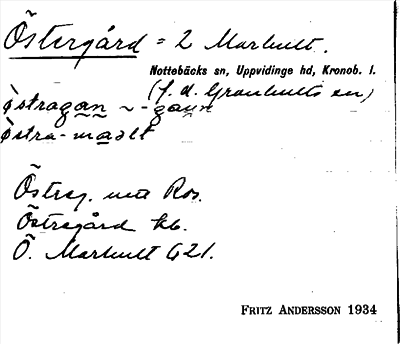 Östergård = 2 Marhult.
Nottebäcks sn, Uppvidinge hd, Kronob. l.
(f. d. Granhults sn)
östragan ~ -gaṇn
östra-maɔlt
Österg. uta Ros.
Östregård kb.
Ö. Marhult G21.
FRITZ ANDERSSON 1934